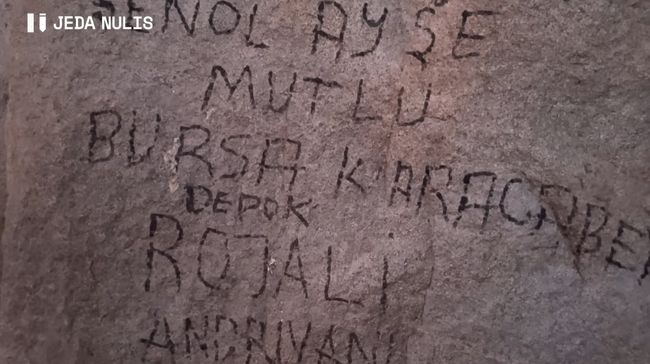 JEDA NULIS
ŞENOL AYŞE
MUTLU
BURSA KARACABEY
DEPOK
ROJALi
ANDRIYANI